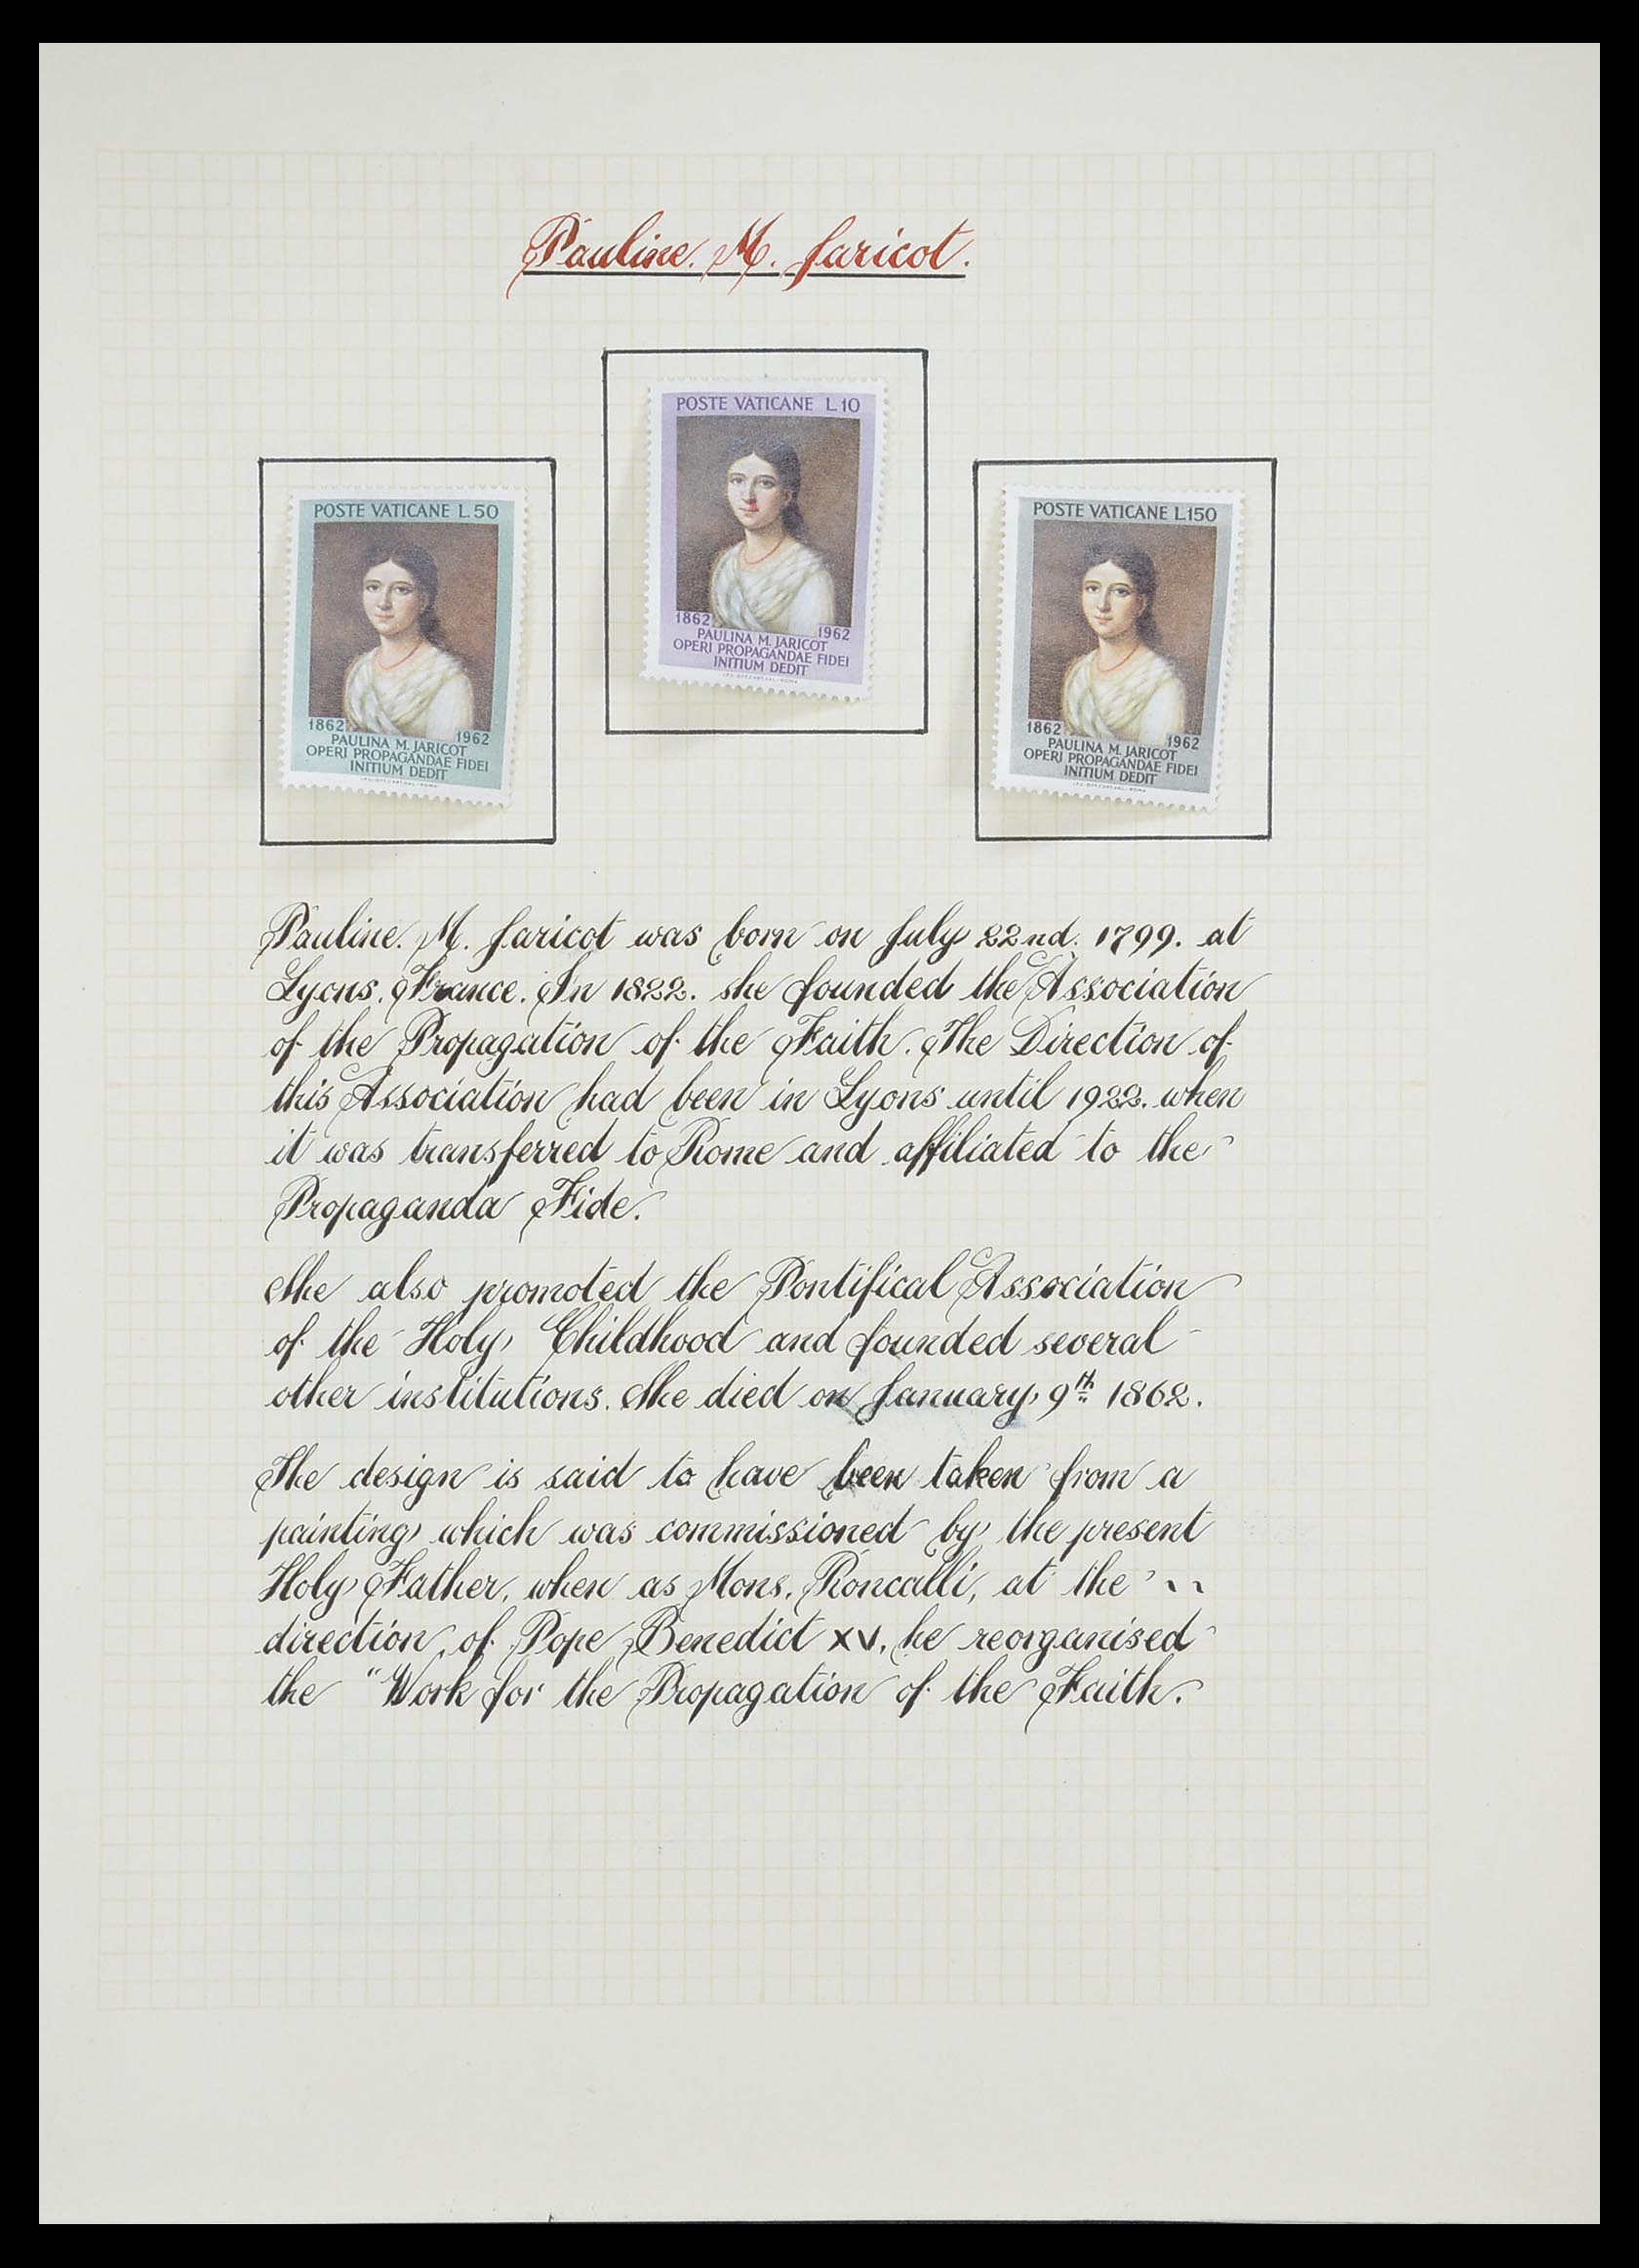 Pauline. M. Jaricot.
POSTE VATICANE L.10
1862
1962
PAULINA M. JARICOT
OPERI PROPAGANDAE FIDEI
INITIUM DEDIT
POSTE VATICANE L.50
1862
1962
PAULINA M. JARICOT
OPERI PROPAGANDAE FIDEI
INITIUM DEDIT
POSTE VATICANE L.150
1862
1962
PAULINA M. JARICOT
OPERI PROPAGANDAE FIDEI
INITIUM DEDIT
Pauline. M. Jaricot was born on July 22nd. 1799. at
Lyons. France. In 1822. she founded the Association
of the Propagation of the Faith. The Direction of
this Association had been in Lyons until 1922. when
it was transferred to Rome and affiliated to the
Propaganda Fide.
She also promoted the Pontifical Association
of the Holy Childhood and founded several
other institutions. She died on January 9th 1862.
The design is said to have been taken from a
painting which was commissioned by the present
Holy Father, when as Mons. Roncalli, at the
direction, of Pope Benedict XV, he reorganised
the "Work for the Propagation of the Faith.